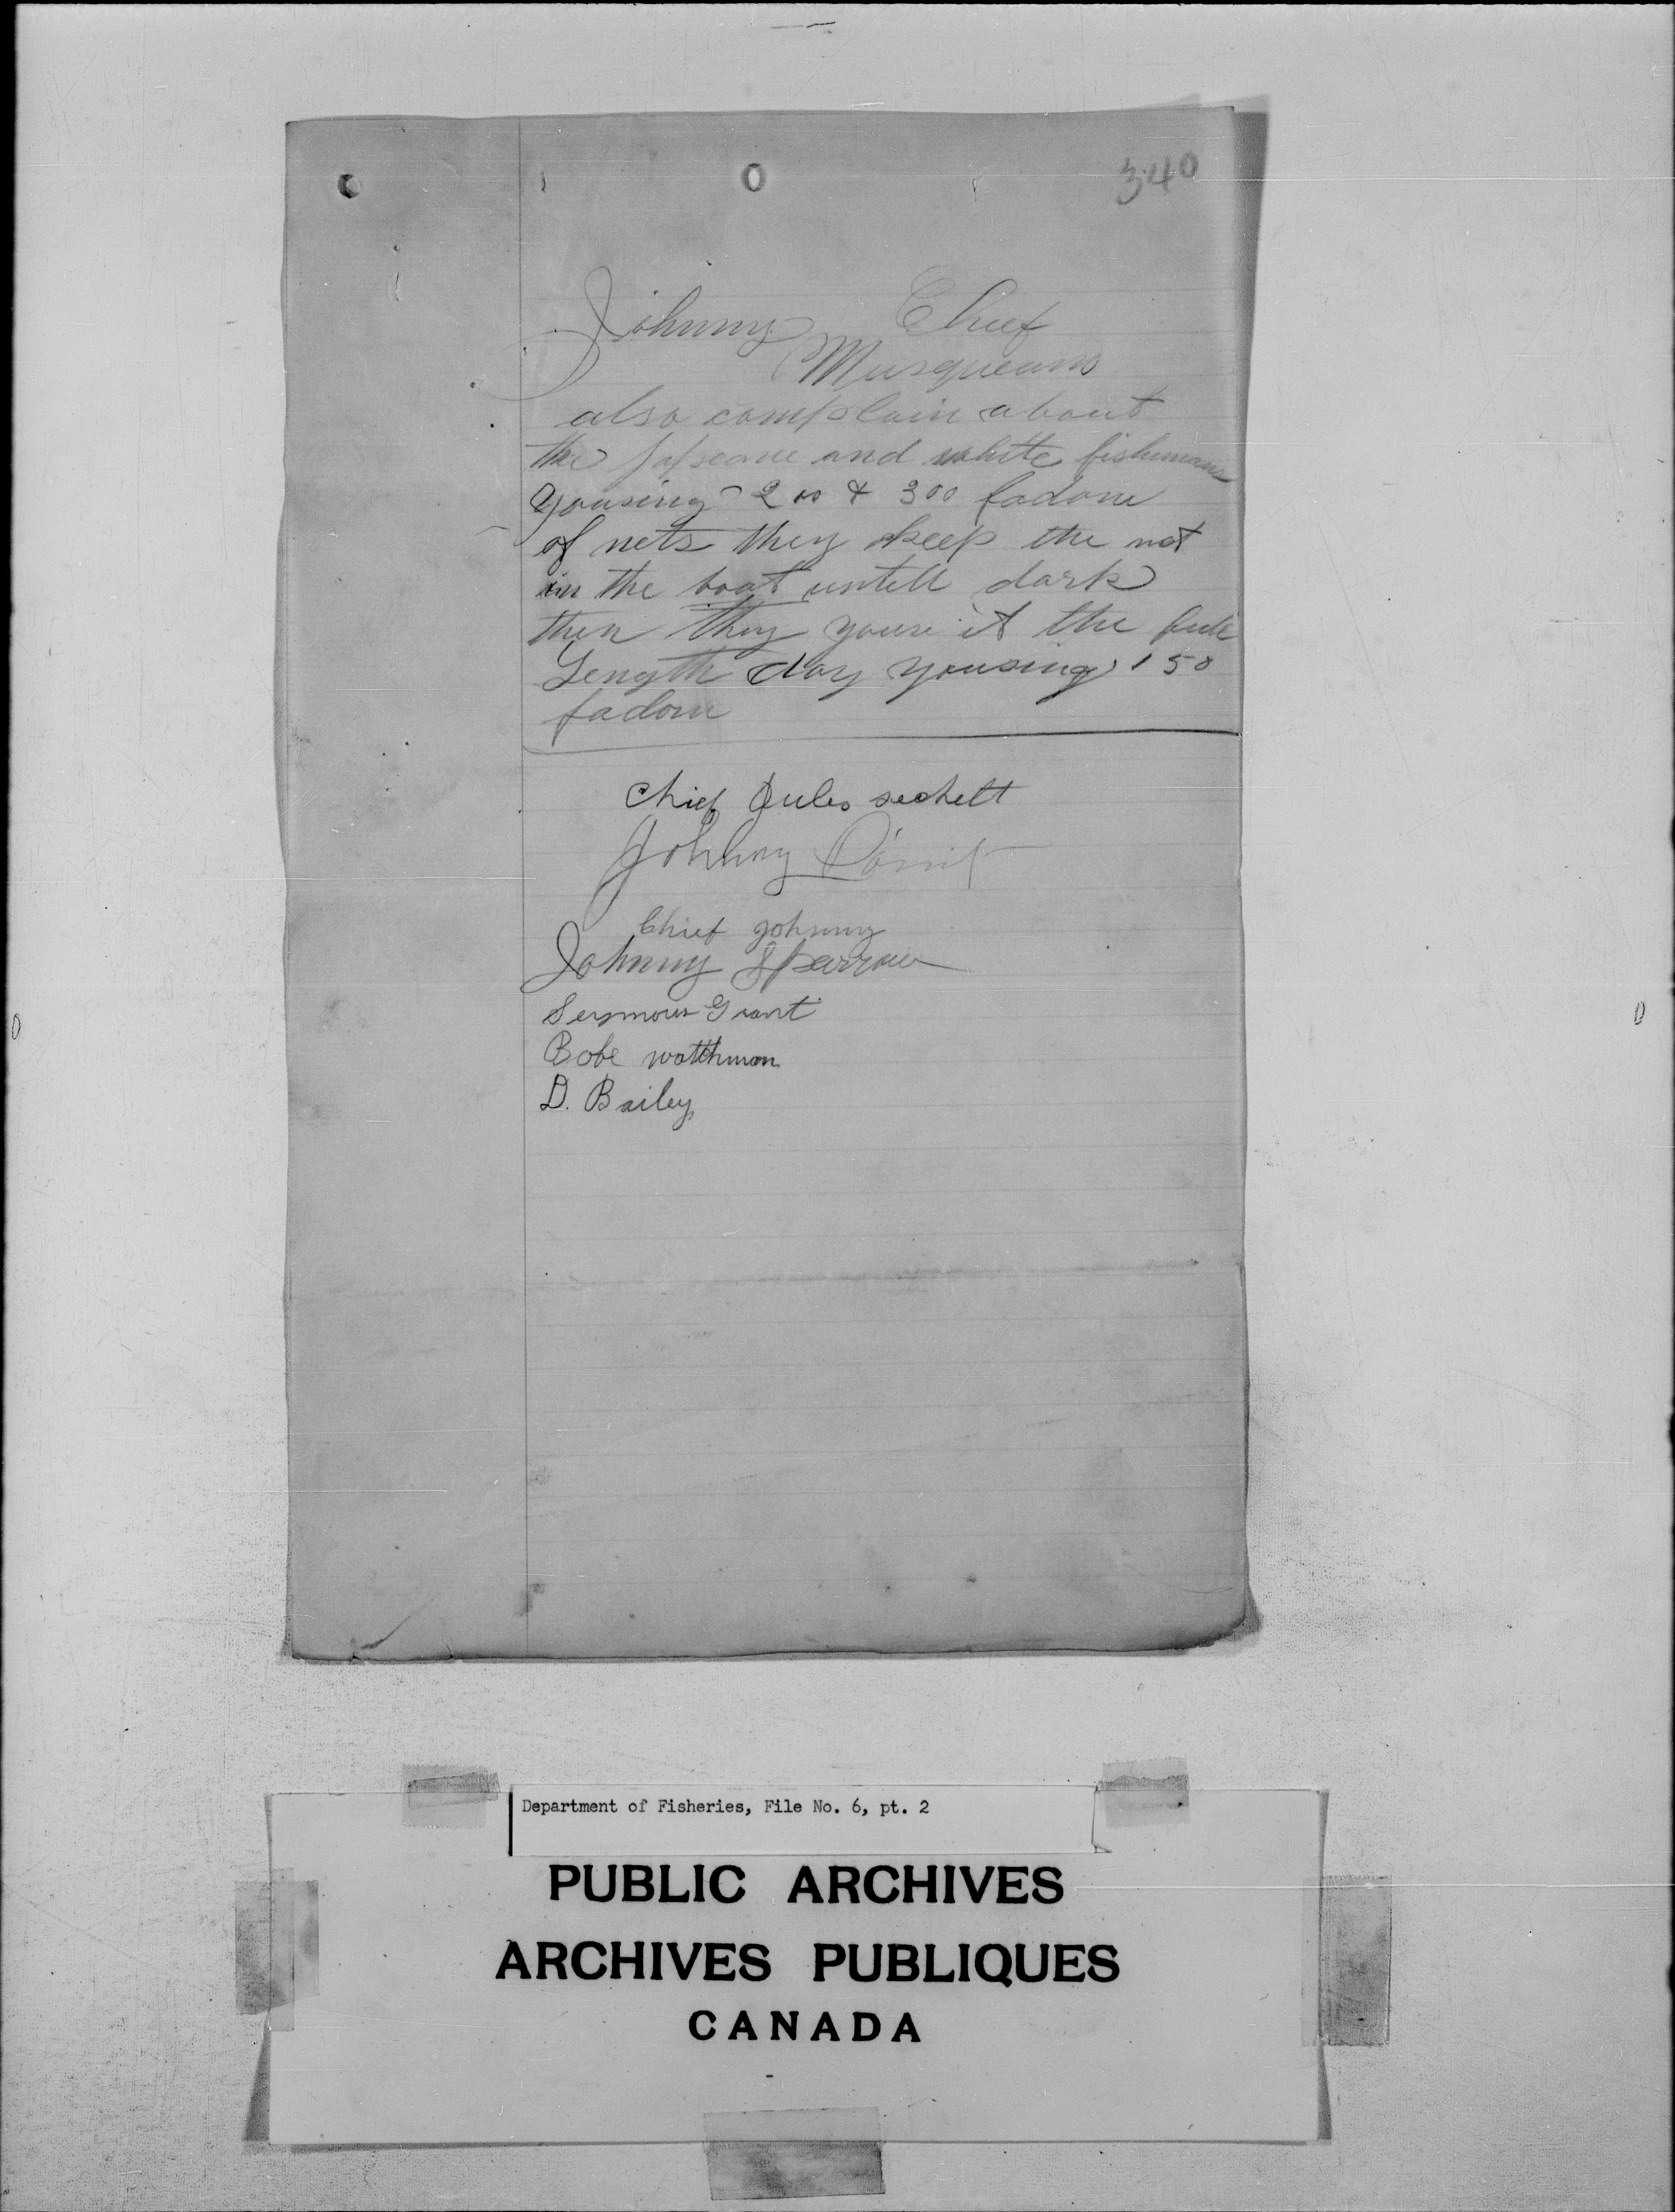 340
Johnny Chief
Musqueam
also complain about
the Japseane and white fishemans
yousing 200 & 300 fadome
of nets they keep the net
in the boat untell dark
then they youse it the full
Length day yousing 150
fadom
Chief Jules sechelt
Johnny
Chief Johnny
Johnny Sparrow
Seymour Grant
Bobe watchman
D. Bailey,
Department of Fisheries, File No. 6, pt. 2
PUBLIC ARCHIVES
ARCHIVES PUBLIQUES
CANADA